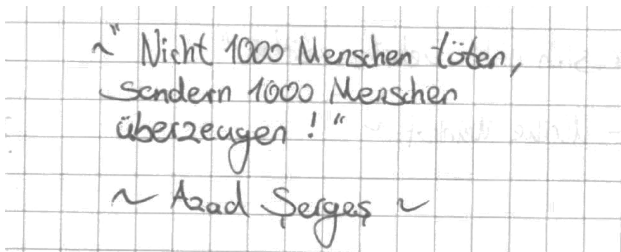 ~ " Nicht 1000 Menschen töten,
sondern 1000 Menschen
überzeugen ! "
~ Azad Şergeş ~